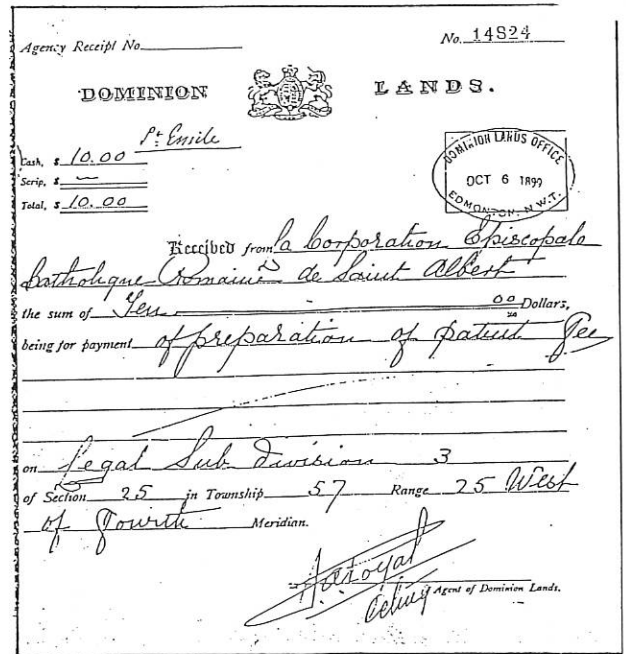 Agency Receipt No.
No. 14824
DOMINION LANDS.
St Emile
Cash, $ 10.00
Scrip, $ —
Total, $ 10.00
DOMINION LANDS OFFICE
OCT 6 1899
EDMONTON, N.W.T.
Received from la Corporation Episcopale
Catholique Romaine de Saint Albert
the sum of Ten 00 Dollars,
being for payment of preparation of patent fee
on Legal Sub division 3
of Section 25 in Township 57 Range 25 West
of Fourth Meridian.
Acting Agent of Dominion Lands.